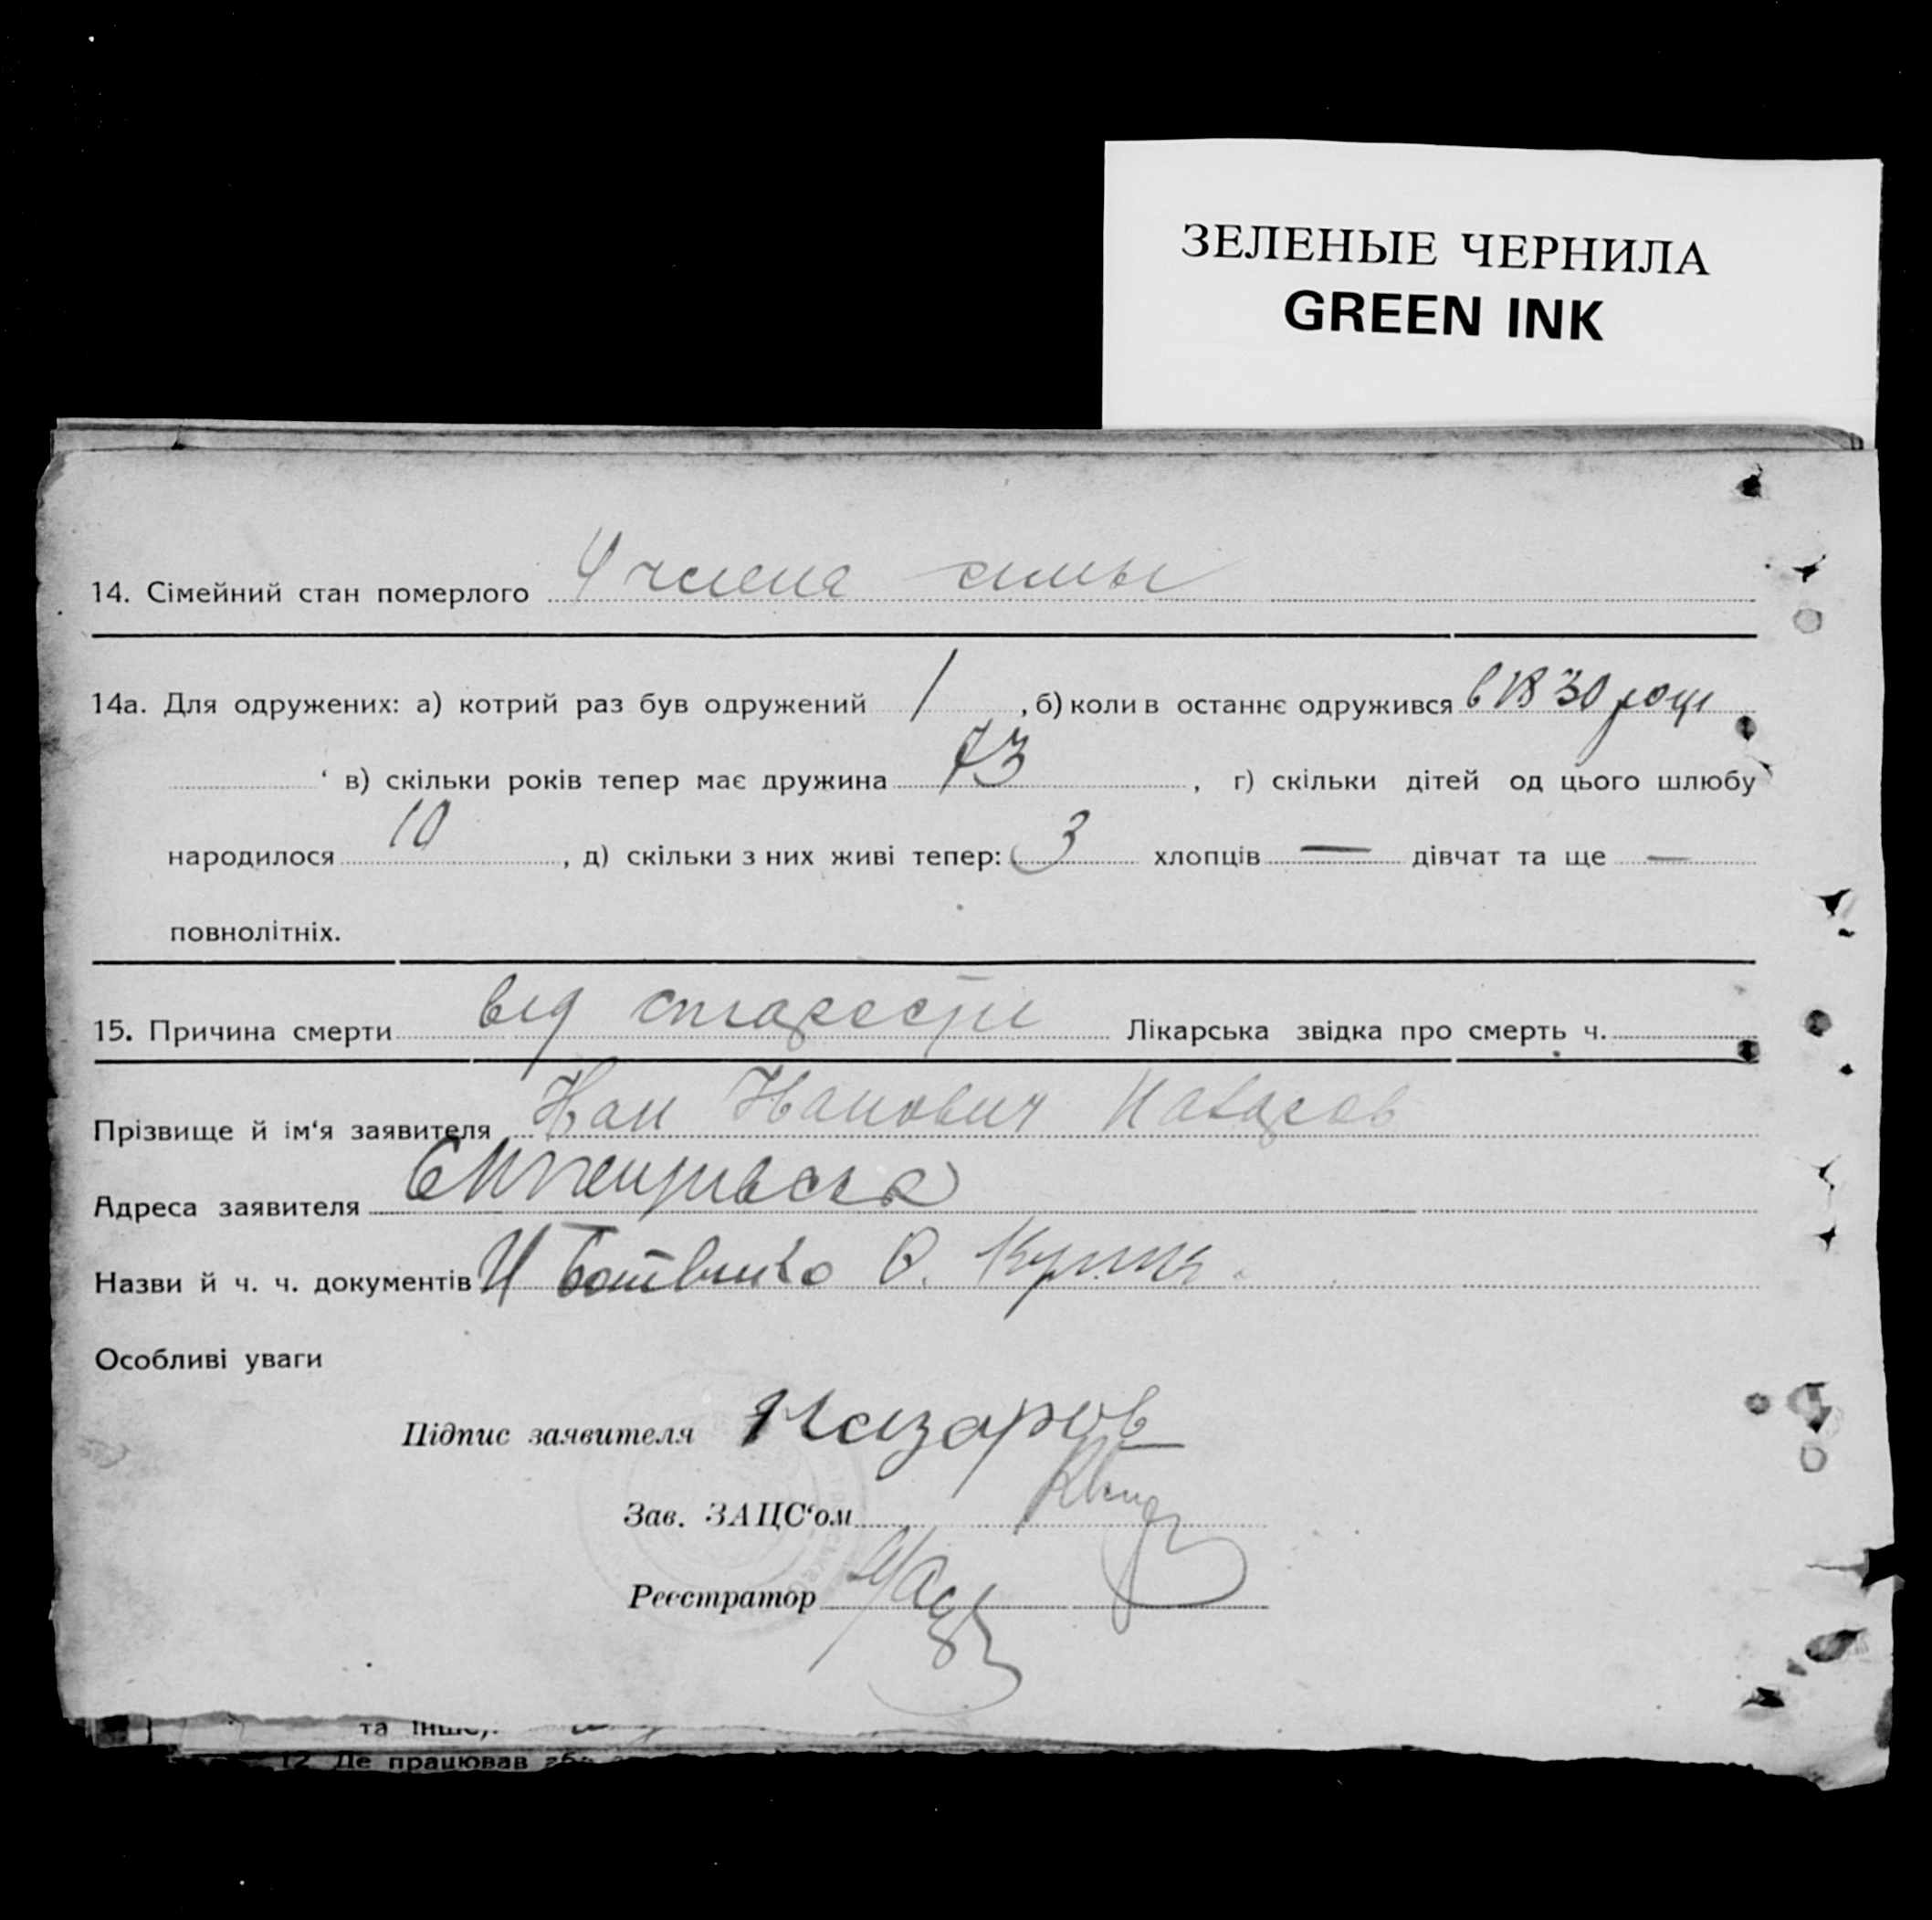 ЗЕЛЕНЫЕ ЧЕРНИЛА
GREEN INK
14. Сімейний стан померлого 4 члена
14а. Для одружених: а) котрий раз був одружений 1, б) коли в останнє одружився в 1830 році
в) скільки років тепер має дружина 73, г) скільки дітей од цього шлюбу
народилося 10, д) скільки з них живі тепер: 3 хлопців — дівчат та ще —
повнолітніх.
15. Причина смерти від старости Лікарська звідка про смерть ч.
Прізвище й ім'я заявителя Иван Иванович Назаров
Адреса заявителя
Назви й ч. ч. документів
Особливі уваги
Підпис заявителя Назаров
Зав. ЗАЦС'ом
Реєстратор
та інше,
12 Де працював або